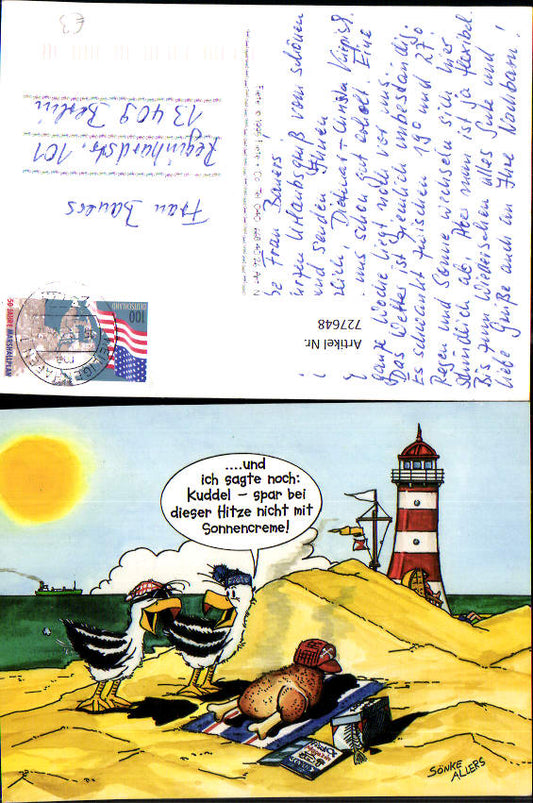 €3
Frau Bauers
Reginhardstr. 101
13409 Berlin
100
DEUTSCHLAND
50 JAHRE MARSHALLPLAN
Artikel Nr.
727648
Frau Bauers,
Urlaubsgruß vom schönen
und senden Ihnen
Dietmar + Christa
uns schon gut erholt. Eine
ganze Woche liegt noch vor uns.
Das Wetter ist ziemlich unbeständig.
Es schwankt zwischen 19° und 27°.
Regen und Sonne wechseln sich hier
stündlich ab. Aber man ist ja flexibel.
Bis zum Wiedersehen alles Gute und
liebe Grüße auch an Ihre Nachbarn!
....und
ich sagte noch:
Kuddel – spar bei
dieser Hitze nicht mit
Sonnencreme!
SÖNKE
ALLERS